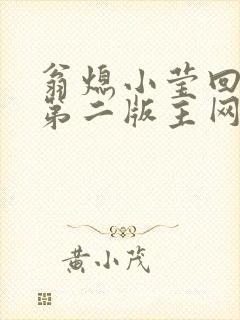 翁熄小莹回
第二版主网
黄小茂